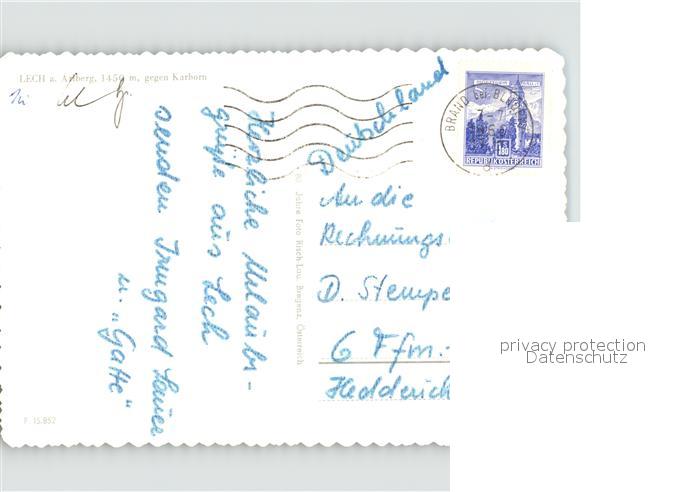 LECH a. Arlberg, 1450 m, gegen Karhorn
Deutschland
BRAND bei BLUDENZ
1.80
REPUBLIK ÖSTERREICH
Herzliche Urlaubs-
grüße aus Lech
senden Irmgard
u. "Gatte"
80 Jahre Foto Risch-Lau, Bregenz, Österreich
An die
Rechnungs
D. Stempe
6 Ffm.-
Hedderich
F. 15.852
privacy protection
Datenschutz